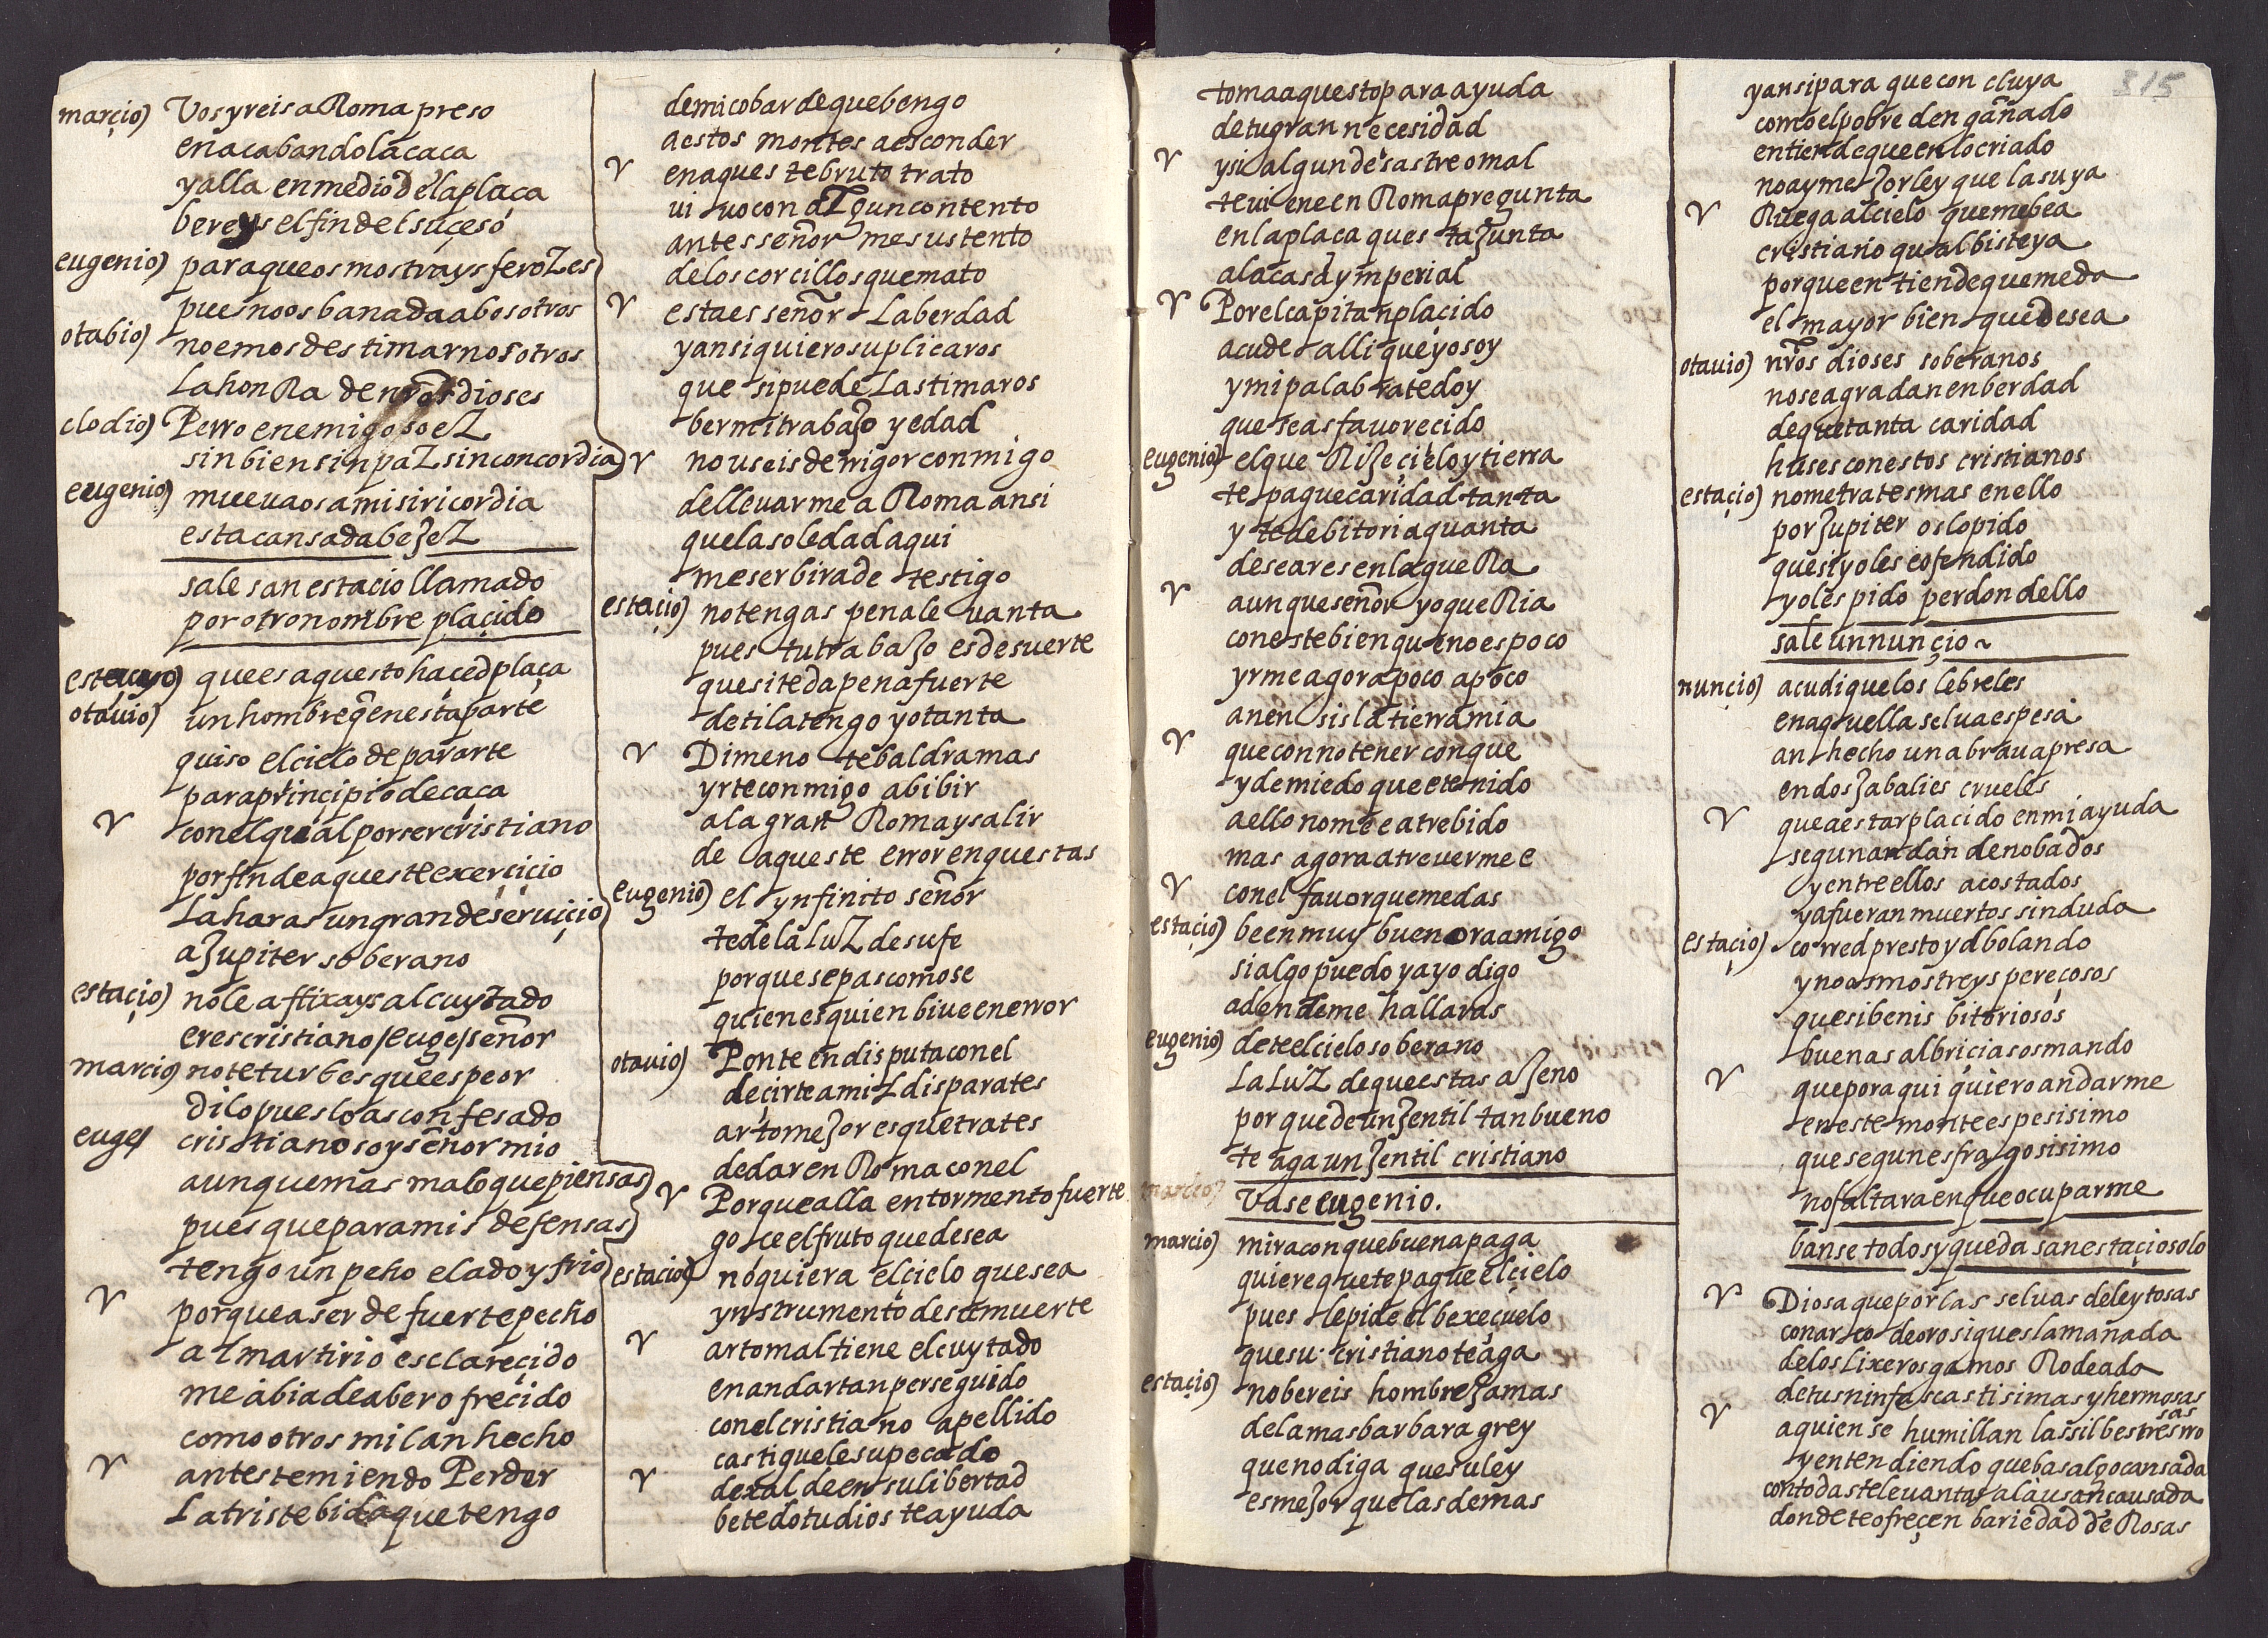 marçio) Vos yreis a Roma preso
en acabando la caca
y alla en medio de la plaça
bereys el fin del suçeso
eugenio) para que os mostrays feroZes
pues no os ba nada a bosotros
otabio) no emos destimar nosotros
La honRa de nros dioses
clodio) Perro enemigo soeZ
sin bien sin paZ sin concordia
eugenio) muevaos a misiricordia
esta cansada beJeZ
sale san estacio llamado
por otro nombre plaçido
que es aquesto haced plaça
otauio) un hombre q̃ en esta parte
quiso el cielo depararte
para prinçipio de caca
V con el qual por ser cristiano
por fin de aqueste exerçiçio
La haras un grande seruiçio
a Jupiter soberano
estaçio) no le aflixays al cuytado
eres cristiano /euge/ señor
marcio) no te turbes que es peor
dilo pues lo as confesado
euge/ cristiano soy señor mio
aunque mas malo que piensas
pues que para mis defensas
tengo un peho elado y frio
V porque a ser de fuerte pecho
al martirio esclareçido
me abia de aber ofreçido
como otros mil an hecho
V antes temiendo Perder
La triste bida que tengo
de mi cobarde que bengo
a estos montes a esconder
V en aqueste bruto trato
uiuo con alGun contento
antes señor me sustento
de los corcillos que mato
V esta es señor La berdad
y ansi quiero suplicaros
que si puede Lastimaros
ber mi trabaJo y edad
V no useis de rrigor conmigo
de lleuarme a Roma ansi
que la soledad aqui
me serbira de testigo
estaçio) no tengas pena leuanta
pues tu trabaJo es de suerte
que si te da pena fuerte
de ti la tengo yo tanta
V Dime no te baldra mas
yrte conmigo a bibir
a la gran Roma y salir
de aqueste error en que estas
eugenio) el ynfinito señor
te de la luZ de su fe
porque sepas como se
quien es quien biue en error
otauio) Ponte en disputa con el
deçirte a mil disparates
arto meJor es que trates
de dar en Roma con el
V Porque alla en tormento fuerte
goce el fruto que desea
estacio) no quiera el cielo que sea
ynstrumento de su muerte
V arto mal tiene el cuytado
en andar tan perseguido
con el cristiano apellido
castiguele su pecado
V dexalde en su libertad
bete do tu dios te ayuda
315
toma aquesto para ayuda
de tu gran necesidad
V y si algun desastre o mal
te uiene en Roma pregunta
en la placa questa Junta
a la casa ymperial
V Por el capitan placido
acude alli que yo soy
y mi palabra te doy
que seas fauorecido
eugenio) el que RiJe çielo y tierra
te pague caridad tanta
y te de bitoria quanta
deseares en la gueRa
V aunque señor yo queRia
con este bien que no es poco
yrme agora poco a poco
a nensis la tierra mia
V que con no tener con que
y de miedo que e tenido
a ello no me e atrebido
mas agora atreuerme e
V con el fauor que me das
estaçio) be en muy buen ora amigo
si algo puedo ya yo digo
adende me hallaras
eugenio) dete el cielo soberano
La LuZ de que estas aJeno
porque de un Jentil tan bueno
te aga un Jentil cristiano
marcio)
Vase eugenio.
marcio) mira con que buena paga
quiere que te pague el çielo
pues le pide el bexeçuelo
que su cristiano te aga
estaçio) no bereis hombre Jamas
de la mas barbara grey
que no diga que su ley
es meJor que las demas
y ansi para que concluya
como el pobre dengañado
entiende que en lo criado
no ay meJor ley que la suya
V Ruega al cielo que me bea
cristiano qual biste ya
porque entiende que me da
el mayor bien que desea
otauio) nros dioses soberanos
no se agradan en berdad
de que tanta caridad
huses con estos cristianos
estaçio) no me trates mas en ello
por Jupiter os lo pido
que si yo les e ofendido
yo les pido perdon dello
sale un nunçio ~
nunçio) acudi que los lebreles
en aquella selua espesa
an hecho una braua presa
en dos Jabalies crueles
V que a estar placido en mi ayuda
segun andan denobados
y entre ellos acostados
ya fueran muertos sin duda
estaçio) corred presto yd bolando
y no os mostreys pereçosos
que si benis bitoriosos
buenas albricias os mando
V que por aqui quiero andarme
en este monte espesisimo
que segun es fragosisimo
no faltara en que ocuparme
banse todos y queda san estaçio solo
V Diosa que por las seluas deleytosas
con arco de oro sigues la manada
de los Lixeros gamos Rodeada
de tus ninfas castisimas y hermosas
V a quien se humillan las silbestres rrosas
y entendiendo que bas algo cansada
con todas te leuantas a la usança usada
donde te ofreçen bariedad de Rosas